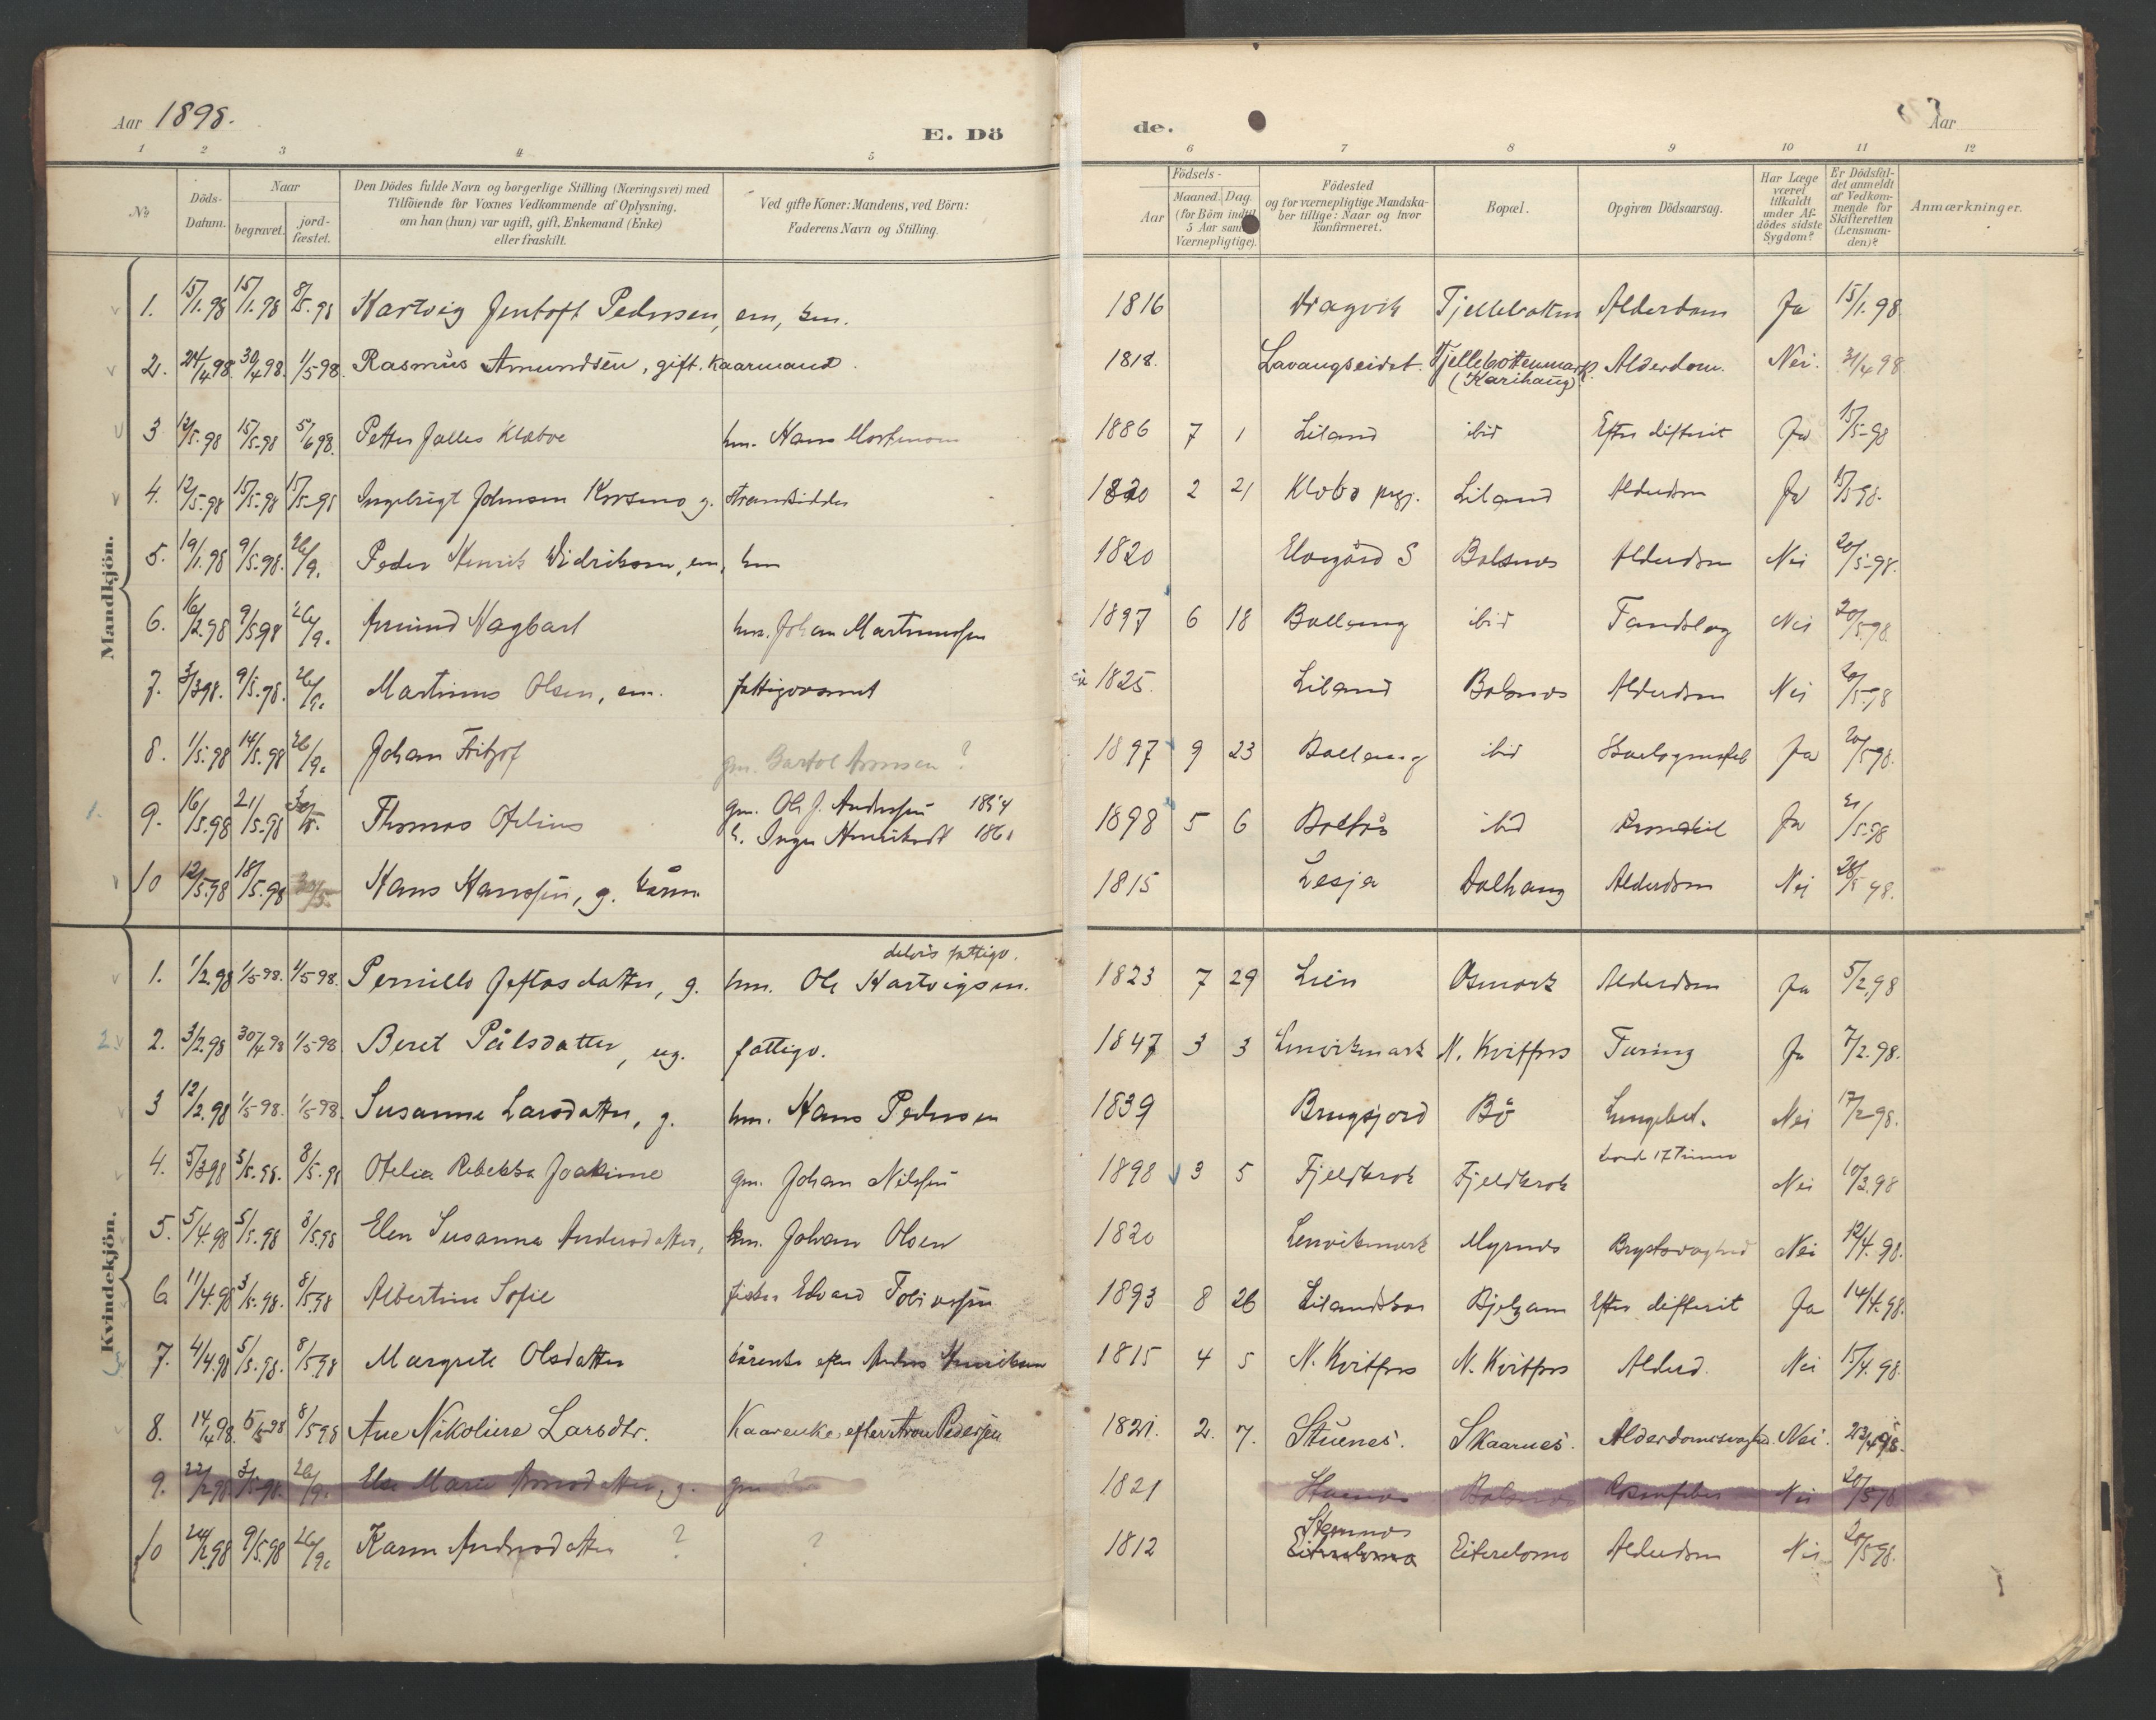 Aar 1898.
E. Dö
de.
Aar
1 2 3 4 5 6 7 8 9 10 11 12
No
Döds-Datum.
Naar
begravet.
jord-fæstet.
Den Dödes fulde Navn og borgerlige Stilling (Næringsvei) med
Tilföiende for Voxnes Vedkommende af Oplysning,
om han (hun) var ugift, gift, Enkemand (Enke)
eller fraskilt.
Ved gifte Koner: Mandens, ved Börn:
Faderens Navn og Stilling.
Födsels-
Aar
Maaned.
Dag.
(for Börn indtil
5 Aar samt
Værnepligtige).
Födested
og for værnepligtige Mandska-
ber tillige: Naar og hvor
konfirmeret.
Bopæl.
Opgiven Dödsaarsag.
Har Læge
været
tilkaldt
under Af-
dödes sidste
Sygdom?
Er Dödsfal-
det anmeldt
af Vedkom-
mende for
Skifteretten
(Lensman-
den)?
Anmærkninger.
Mandkjön.
1. 15/1.98 15/1.98 8/5.98 Hartvig Jentoft Pedersen, em, km. 1816 Dragvik Fjeldbotten Alderdom Ja 15/1.98
2. 24/4 98. 30/4 98. 1/5 98. Rasmus Amundsen, gift. Kaarmand. 1818. Lavangseidet. Fjellebottenmark (Karihaug) Alderdom. Nei. 31/4 98
3 12/5.98 15/5.98 5/6 98. Petter Jalles Klæboe hm. Hans Mortenson 1886 7 1 Liland ibid Efter difterit Ja 15/5-98
4. 12/5.98 15/5.98 15/5-98 Ingebrigt Johnsen Korsmo g. Strandsidder 1820 2 21 Klæbo prgj. Liland Alderdom Ja 15/5 98.
5. 19/1.98 9/5.98. 26/9. Peder Henrik Didriksen, em, km 1820 Elvegård S Balsnes Alderdom Nei 20/5-98.
6. 16/2.98 9/5 98 26/9. Amund Hagbart hm. Johan Martinussen 1897 6 18 Ballang ibid Tandslag Nei 20/5-98.
7. 3/3 98. 9/5.98. 26/9. Martinus Olsen, em. fattigvæsnet 1825. Liland Balsnes Alderdom Nei 20/5-98
8. 1/5.98 14/5.98 26/9. Johan Fritjof gm. Bartol Arnsen ? 1897 9 23 Ballang ibid Ja 20/5 98.
1. 9. 16/5.98 21/5.98 30/5. Thomas Ofelius gm. Ole J. Anderssen 1854
h. Inga Henriksdt 1861 1898 5 6 Boltås ibid Bronchit Ja 21/5-98
10 12/5.98 18/5.98 30/5 Hans Hanssen, g. kårm. 1815 Lesja Dalhaug Alderdom Nei 28/5 98.
Kvindekjön.
1. 1/2.98 1/5-98. 1/5 98. Pernille Jeftasdatter, g. hm. Ole Hartvigsen. delvis fattigv. 1823 7 29 Lien Osmark Alderdom Ja 5/2.98
2. 2. 3/2.98 30/4 98 1/5-98 Beret Pålsdatter, ug. fattigv. 1847 3 3 Lenvikmark N. Kvitfors Tæring Ja 7/2.98.
3 12/2.98 1/5-98. 1/5-98. Susanne Larsdatter, g. hm. Hans Pedersen 1839 Brugsjord Bö Lungebet. Nei 17/2-98.
4. 5/3 98 5/5.98. 8/5.98 Ofelia Rebekka Joakime gm. Johan Nilssen 1898 3 5 Fjeldkrok Fjeldkrok levede 17 Timer Nei 10/3.98
5. 5/4.98 5/5.98 8/5.98 Elen Susanna Andersdatter, km. Johan Olsen 1820 Lenvikmark Myrnes Brystsvaghed Nei 12/4.98.
6 11/4.98 3/5.98. 8/5.98 Albertine Sofie fisker Edvard Tobiassen 1893 8 26 Lilandskar Bjelgam Efter difterit Ja 14/4.98.
7. 4/4.98 5/5.98. 8/5.98 Margrete Olsdatter kårenke efter Anders Henriksen 1815 4 5 N. Kvitfors N. Kvitfors Alderd. Nei 15/4.98.
8. 14/4 98. 5/5-98 8/5 98 Ane Nikoline Larsdtr. Kaarenke efter Aron Pedersen 1821. 2. 7. Stuenes. Skaarnes. Alderdomssvaghed. Nei. 23/4 98.
9. 22/2.98 3/5.98. 26/9. Else Marie Arnsdatter, g. gm 1821 Stuenes Balsnes Nei 20/5 98
10 24/2.98 9/5.98 26/9. Karen Andersdatter ? ? 1812 Stemnes
Eiterelome Eiterelome Alderdom Nei 20/5 98.